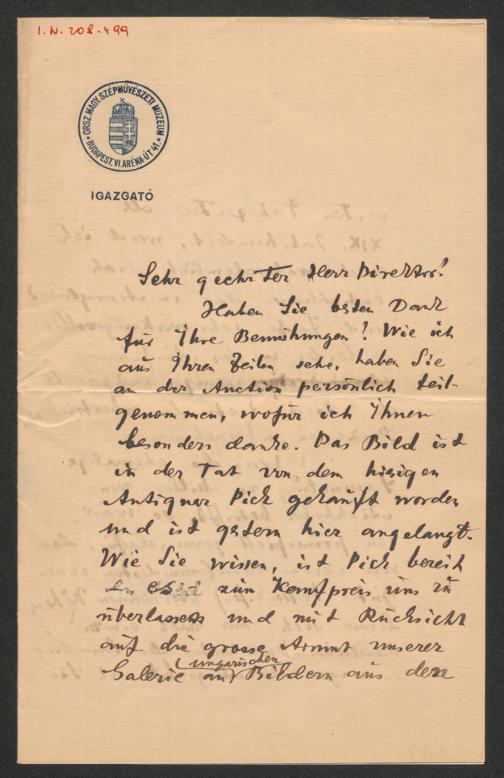 I.N. 208-499
ORSZ. MAGY. SZÉPMŰVÉSZETI MUZEUM
BUDAPEST. VI. ARÉNA-ÚT 41.
IGAZGATÓ
Sehr geehrter Herr Direktor!
Haben Sie besten Dank
für Ihre Bemühungen! Wie ich
aus Ihren Zeilen sehe, haben Sie
an der Auction persönlich teil-
genommen, wofür ich Ihnen
besonders danke. Das Bild ist
in der Tat von dem hiesigen
Antiquar Pick gekauft worden
und ist gestern hier angelangt.
Wie Sie wissen, ist Pick bereit
zum Kaufpreis uns zu
überlassen und mit Rücksicht
auf die grosse Armut unserer
Galerie an (ungarischen) Bildern aus dem